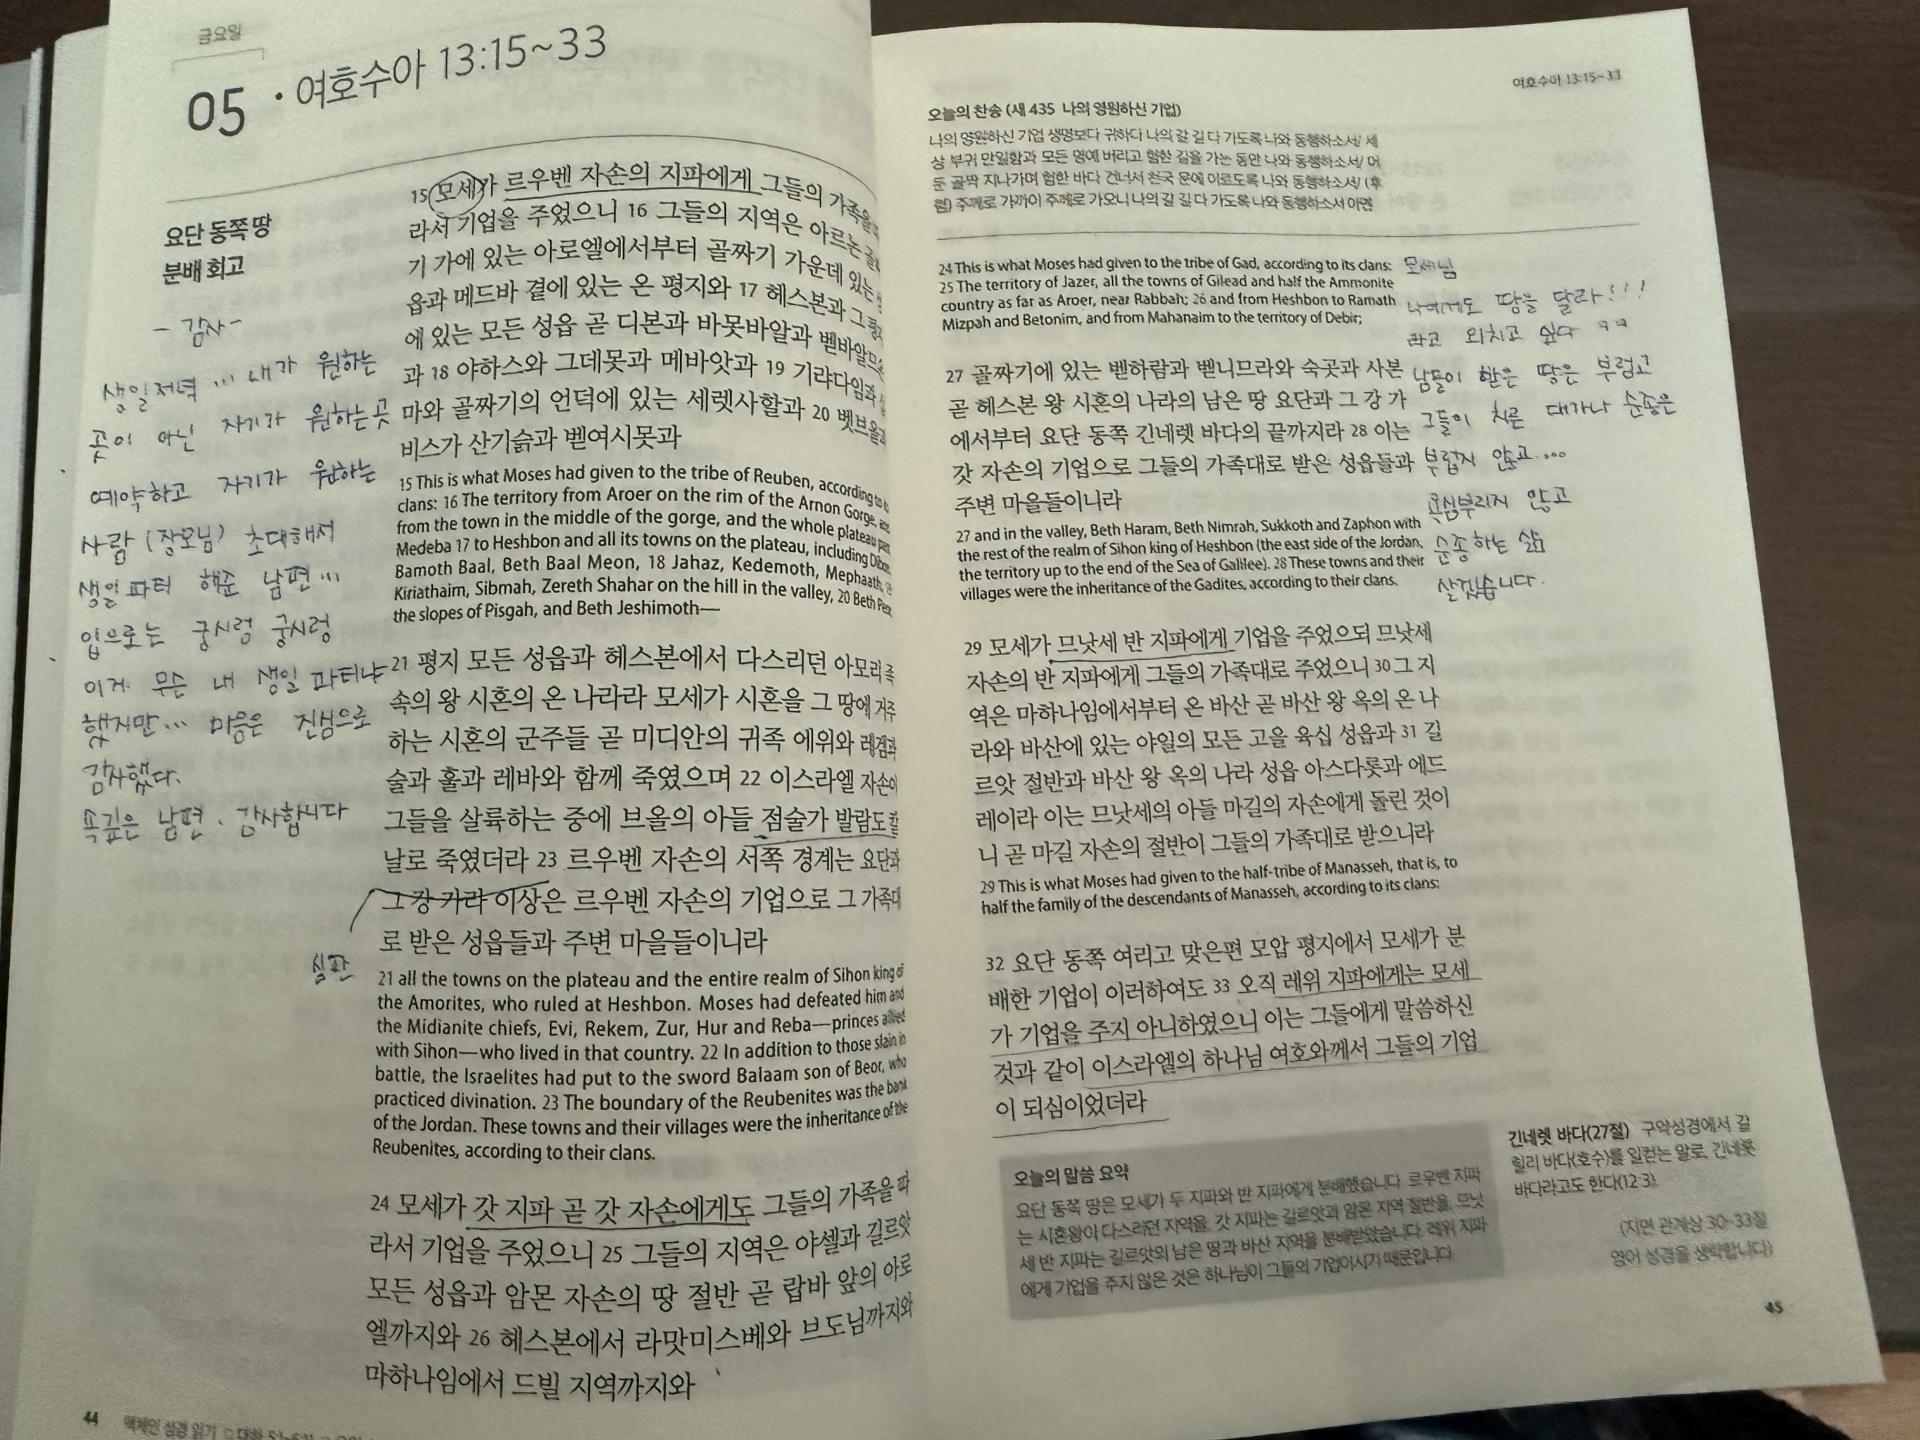 금요일
05 · 여호수아 13:15~33
요단 동쪽 땅
분배 회고
- 감사 -
생일저녁 ... 내가 원하는
곳이 아닌 자기가 원하는 곳
예약하고 자기가 원하는
사람 (장모님) 초대해서
생일파티 해준 남편...
입으로는 궁시렁 궁시렁
이게 무슨 내 생일 파티냐
했지만... 마음은 진심으로
감사했다.
속깊은 남편. 감사합니다
15 모세가 르우벤 자손의 지파에게 그들의 가족을
라서 기업을 주었으니 16 그들의 지역은 아르논
기 가에 있는 아로엘에서부터 골짜기 가운데 있는
읍과 메드바 곁에 있는 온 평지와 17 헤스본과 그
에 있는 모든 성읍 곧 디본과 바못바알과 벧바알므
과 18 야하스와 그데못과 메바앗과 19 기랴다임과
마와 골짜기의 언덕에 있는 세렛사할과 20 벳브올과
비스가 산기슭과 벧여시못과
15 This is what Moses had given to the tribe of Reuben, according to
clans: 16 The territory from Aroer on the rim of the Arnon Gorge,
from the town in the middle of the gorge, and the whole plateau
Medeba 17 to Heshbon and all its towns on the plateau, including Dibon,
Bamoth Baal, Beth Baal Meon, 18 Jahaz, Kedemoth, Mephaath,
Kiriathaim, Sibmah, Zereth Shahar on the hill in the valley, 20 Beth Peor,
the slopes of Pisgah, and Beth Jeshimoth—
21 평지 모든 성읍과 헤스본에서 다스리던 아모리 족
속의 왕 시혼의 온 나라라 모세가 시혼을 그 땅에 거주
하는 시혼의 군주들 곧 미디안의 귀족 에위와 레겜과
술과 훌과 레바와 함께 죽였으며 22 이스라엘 자손이
그들을 살륙하는 중에 브올의 아들 점술가 발람도 칼
날로 죽였더라 23 르우벤 자손의 서쪽 경계는 요단과
그 강 가라 이상은 르우벤 자손의 기업으로 그 가족대
로 받은 성읍들과 주변 마을들이니라
실판
21 all the towns on the plateau and the entire realm of Sihon king of
the Amorites, who ruled at Heshbon. Moses had defeated him and
the Midianite chiefs, Evi, Rekem, Zur, Hur and Reba—princes allied
with Sihon—who lived in that country. 22 In addition to those slain in
battle, the Israelites had put to the sword Balaam son of Beor, who
practiced divination. 23 The boundary of the Reubenites was the bank
of the Jordan. These towns and their villages were the inheritance of the
Reubenites, according to their clans.
24 모세가 갓 지파 곧 갓 자손에게도 그들의 가족을 따
라서 기업을 주었으니 25 그들의 지역은 야셀과 길르앗
모든 성읍과 암몬 자손의 땅 절반 곧 랍바 앞의 아로
엘까지와 26 헤스본에서 라맛미스베와 브도님까지와
마하나임에서 드빌 지역까지와
44
맥체인 성경 읽기
여호수아 13:15~33
오늘의 찬송 (새 435 나의 영원하신 기업)
나의 영원하신 기업 생명보다 귀하다 나의 갈 길 다 가도록 나와 동행하소서/ 세
상 부귀 안일함과 모든 명예 버리고 험한 길을 가는 동안 나와 동행하소서/ 어
둔 골짝 지나가며 험한 바다 건너서 천국 문에 이르도록 나와 동행하소서/ (후
렴) 주께로 가까이 주께로 가오니 나의 갈 길 다 가도록 나와 동행하소서 아멘
24 This is what Moses had given to the tribe of Gad, according to its clans:
25 The territory of Jazer, all the towns of Gilead and half the Ammonite
country as far as Aroer, near Rabbah; 26 and from Heshbon to Ramath
Mizpah and Betonim, and from Mahanaim to the territory of Debir;
모세님
나에게도 땅을 달라!!!
라고 외치고 싶다 ㅋㅋ
남들이 받은 땅은 부럽고
그들이 치른 대가나 순종은
부럽지 않고....
욕심부리지 않고
순종하는 삶
살겠습니다.
27 골짜기에 있는 벧하람과 벧니므라와 숙곳과 사본
곧 헤스본 왕 시혼의 나라의 남은 땅 요단과 그 강 가
에서부터 요단 동쪽 긴네렛 바다의 끝까지라 28 이는
갓 자손의 기업으로 그들의 가족대로 받은 성읍들과
주변 마을들이니라
27 and in the valley, Beth Haram, Beth Nimrah, Sukkoth and Zaphon with
the rest of the realm of Sihon king of Heshbon (the east side of the Jordan,
the territory up to the end of the Sea of Galilee). 28 These towns and their
villages were the inheritance of the Gadites, according to their clans.
29 모세가 므낫세 반 지파에게 기업을 주었으되 므낫세
자손의 반 지파에게 그들의 가족대로 주었으니 30 그 지
역은 마하나임에서부터 온 바산 곧 바산 왕 옥의 온 나
라와 바산에 있는 야일의 모든 고을 육십 성읍과 31 길
르앗 절반과 바산 왕 옥의 나라 성읍 아스다롯과 에드
레이라 이는 므낫세의 아들 마길의 자손에게 돌린 것이
니 곧 마길 자손의 절반이 그들의 가족대로 받으니라
29 This is what Moses had given to the half-tribe of Manasseh, that is, to
half the family of the descendants of Manasseh, according to its clans:
32 요단 동쪽 여리고 맞은편 모압 평지에서 모세가 분
배한 기업이 이러하여도 33 오직 레위 지파에게는 모세
가 기업을 주지 아니하였으니 이는 그들에게 말씀하신
것과 같이 이스라엘의 하나님 여호와께서 그들의 기업
이 되심이었더라
오늘의 말씀 요약
요단 동쪽 땅은 모세가 두 지파와 반 지파에게 분배했습니다. 르우벤 지파
는 시혼왕이 다스리던 지역을, 갓 지파는 길르앗과 암몬 지역 절반을, 므낫
세 반 지파는 길르앗의 남은 땅과 바산 지역을 분배받았습니다. 레위 지파
에게 기업을 주지 않은 것은 하나님이 그들의 기업이시기 때문입니다.
긴네렛 바다(27절) 구약성경에서 갈
릴리 바다(호수)를 일컫는 말로, 긴네롯
바다라고도 한다(12:3).
(지면 관계상 30~33절
영어 성경을 생략합니다)
45